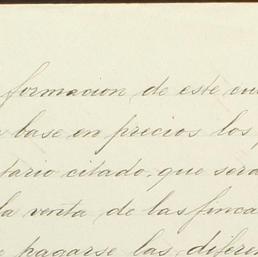 formacion de este
base en precios los
tario citado, que será
la venta de las finca
pagarse las diferen